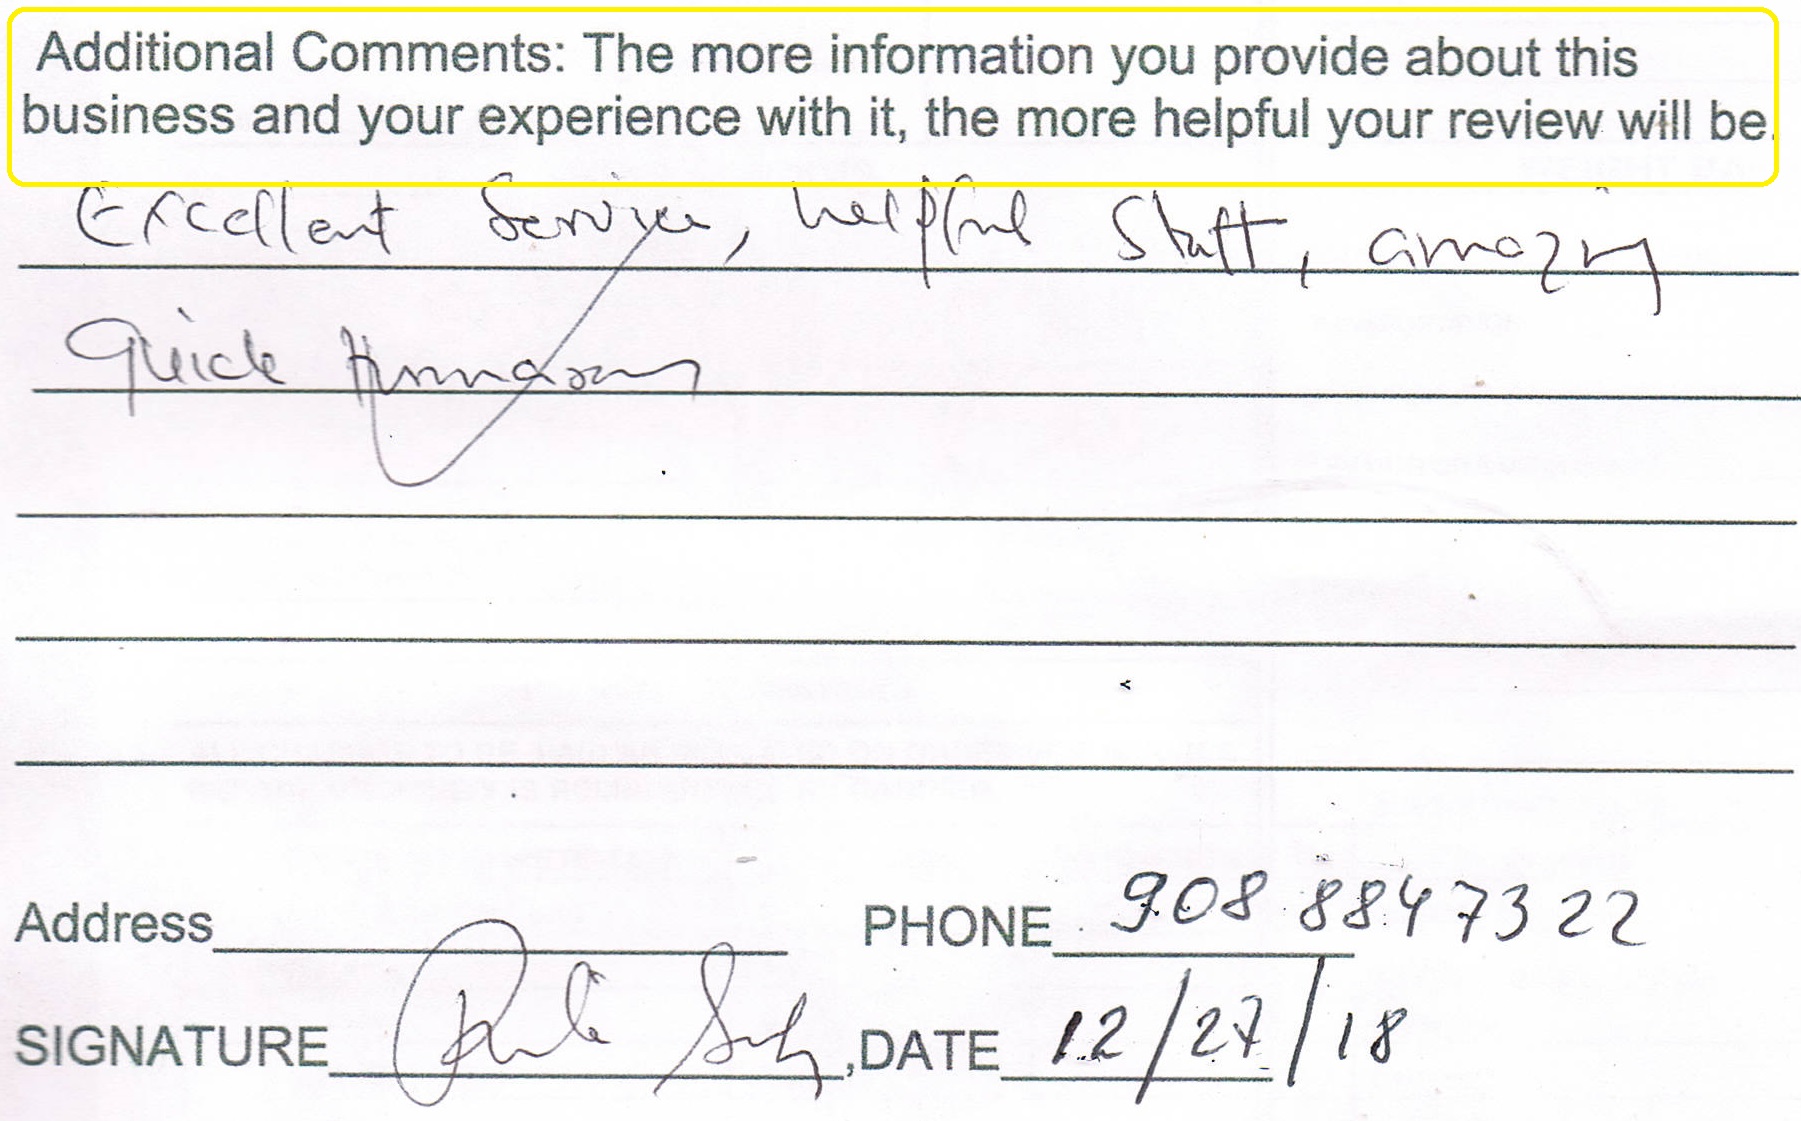 Additional Comments: The more information you provide about this
business and your experience with it, the more helpful your review will be.
Excellent Service, helpful Staff, amazing
Quick
Address PHONE 908 884 7322
SIGNATURE ,DATE 12/27/18